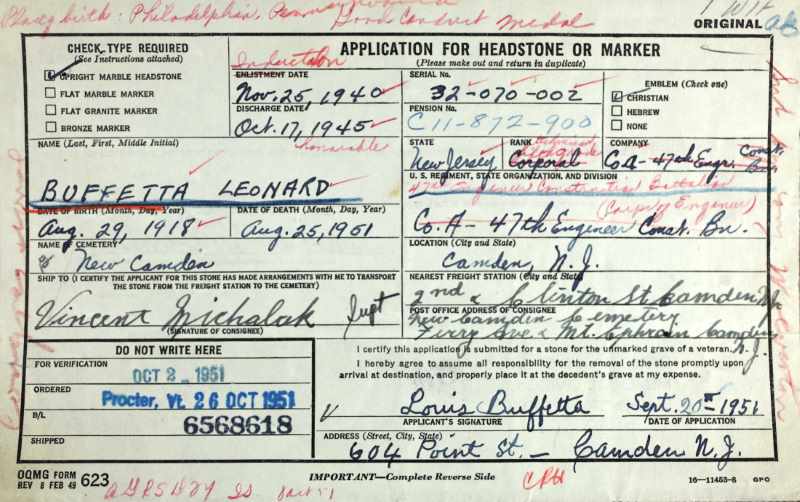 Place of birth: Philadelphia, Pennsylvania
Good Conduct medal
ORIGINAL
CHECK TYPE REQUIRED
(See Instructions attached)
UPRIGHT MARBLE HEADSTONE
FLAT MARBLE MARKER
FLAT GRANITE MARKER
BRONZE MARKER
Induction
ENLISTMENT DATE
Nov. 25, 1940
DISCHARGE DATE
Oct. 17, 1945
Honorable
APPLICATION FOR HEADSTONE OR MARKER
(Please make out and return in duplicate)
SERIAL No.
32-070-002
PENSION No.
C 11-872-900
EMBLEM (Check one)
CHRISTIAN
HEBREW
NONE
NAME (Last, First, Middle Initial)
BUFFETTA LEONARD
STATE
New Jersey
RANK
Corporal
COMPANY
Co. A - 47th Engr. Const. Bn.
U. S. REGIMENT, STATE ORGANIZATION, AND DIVISION
47th Engineer Construction Battalion
(Corps of Engineer)
Co. A - 47th Engineer Const. Bn.
DATE OF BIRTH (Month, Day, Year)
Aug. 29, 1918
DATE OF DEATH (Month, Day, Year)
Aug. 25, 1951
NAME OF CEMETERY
New Camden
LOCATION (City and State)
Camden, N. J.
SHIP TO (I CERTIFY THE APPLICANT FOR THIS STONE HAS MADE ARRANGEMENTS WITH ME TO TRANSPORT
THE STONE FROM THE FREIGHT STATION TO THE CEMETERY)
Vincent Michalak Supt
(SIGNATURE OF CONSIGNEE)
NEAREST FREIGHT STATION (City and State)
2nd & Clinton St. Camden N.J.
POST OFFICE ADDRESS OF CONSIGNEE
New Camden Cemetery
Ferry Ave & Mt. Ephrain Camden
N. J.
DO NOT WRITE HERE
FOR VERIFICATION
OCT 2 - 1951
ORDERED
Procter, Vt. 26 OCT 1951
B/L
6568618
SHIPPED
I certify this application is submitted for a stone for the unmarked grave of a veteran.
I hereby agree to assume all responsibility for the removal of the stone promptly upon
arrival at destination, and properly place it at the decedent's grave at my expense.
Louis Buffetta
APPLICANT'S SIGNATURE
Sept. 20th 1951
DATE OF APPLICATION
ADDRESS (Street, City, State)
604 Point St. - Camden N. J.
OQMG FORM
REV 8 FEB 49
623
IMPORTANT—Complete Reverse Side
16-11453-6 GPO